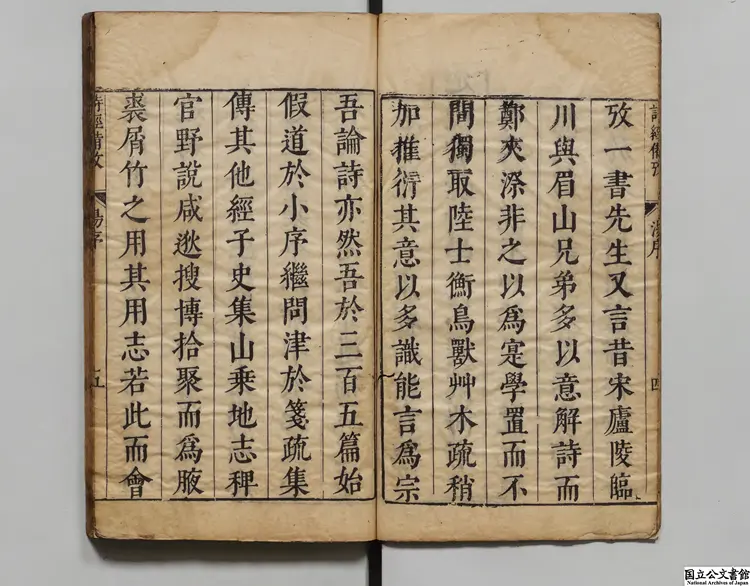 詩經備攷
湯序
四
攷一書先生又言昔宋廬陵臨
川與眉山兄弟多以意解詩而
鄭夾漈非之以為寔學置而不
間獨取陸士衡鳥獸艸木疏稍
加推衍其意以多識能言為宗
吾論詩亦然吾於三百五篇始
假道於小序繼問津於箋疏集
傳其他經子史集山乗地志稗
官野說咸逖搜博拾聚而為腋
裘屑竹之用其用志若此而會
詩經備攷
湯序
五
国立公文書館
National Archives of Japan